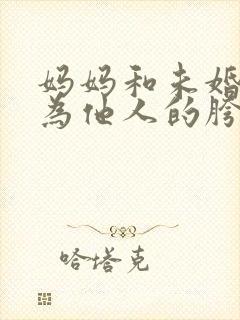 妈妈和未婚
為他人的胯
哈塔克